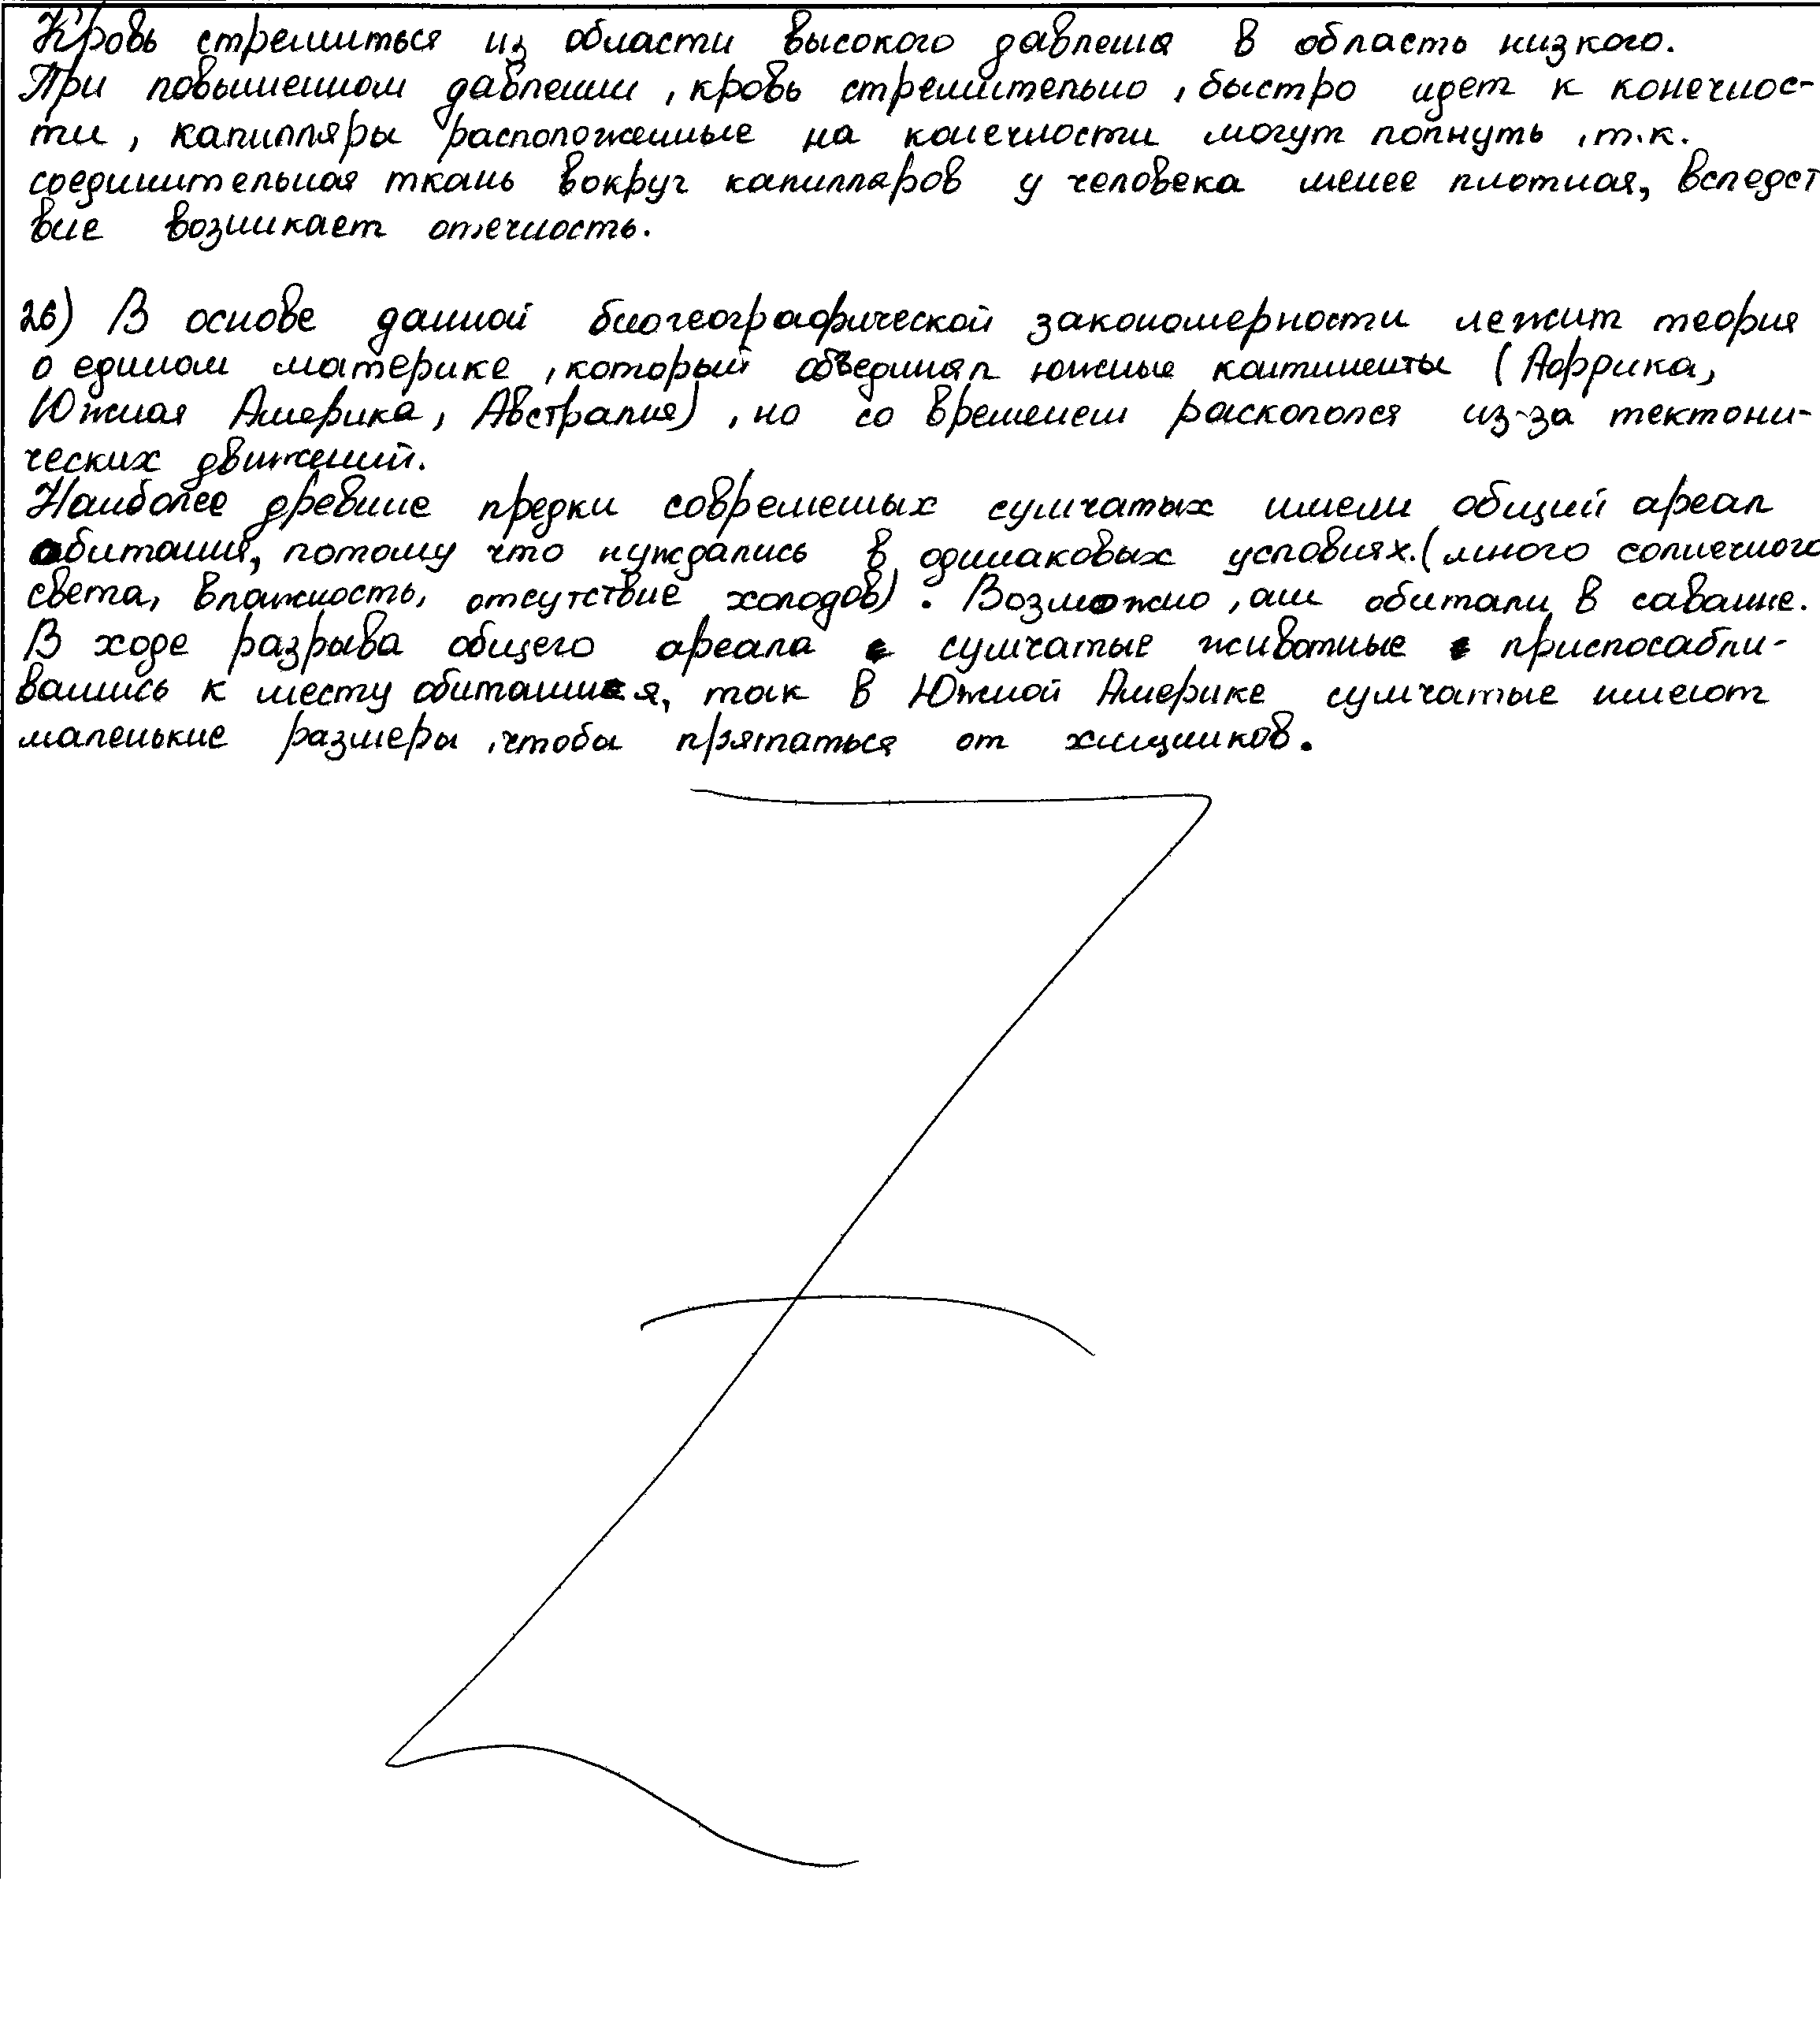 Кровь стремиться из области высокого давления в область низкого.
При повышенном давлении, кровь стремительно, быстро идет к конечнос-
ти, капилляры расположенные на конечности могут лопнуть, т.к.
соединительная ткань вокруг капилляров у человека менее плотная, вследст
вие возникает отечность.
26) В основе данной биогеографической закономерности лежит теория
о едином материке, который объединял южные континенты (Африка,
Южная Америка, Австралия), но со временем раскололся из-за тектони-
ческих движений.
Наиболее древние предки современных сумчатых имели общий ареал
обитания, потому что нуждались в одинаковых условиях. (много солнечного
света, влажность, отсутствие холодов). Возможно, они обитали в саванне.
В ходе разрыва общего ареала сумчатые животные приспосабли-
вались к месту обитания, так в Южной Америке сумчатые имеют
маленькие размеры, чтобы прятаться от хищников.